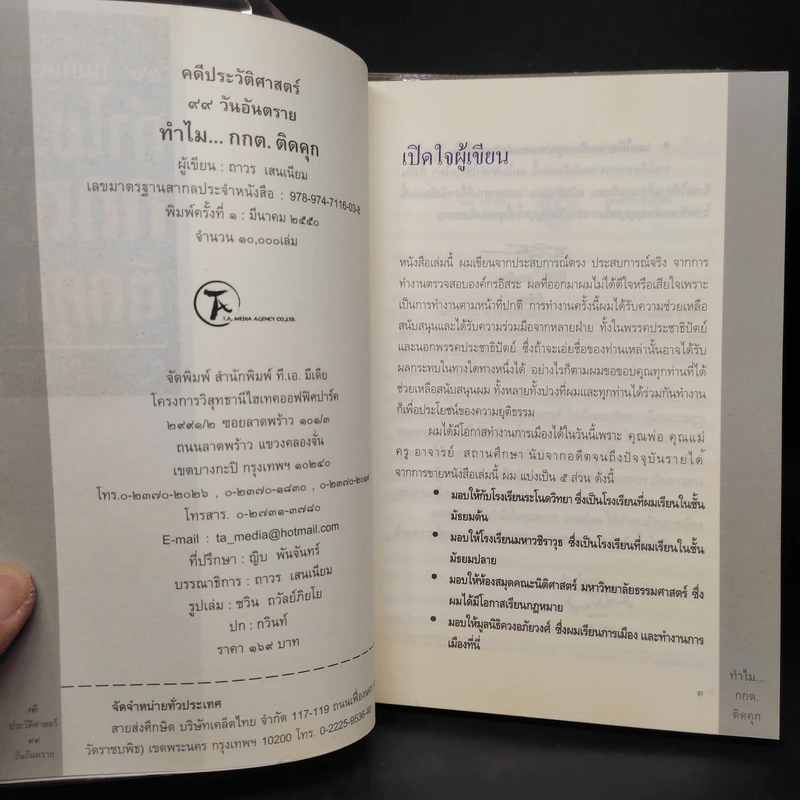 คดีประวัติศาสตร์
๙๙ วันอันตราย
ทำไม... กกต. ติดคุก
ผู้เขียน : ถาวร เสนเนียม
เลขมาตรฐานสากลประจำหนังสือ : 978-974-7116-03-8
พิมพ์ครั้งที่ ๑ : มีนาคม ๒๕๕๐
จำนวน ๑๐,๐๐๐เล่ม
TA
T.A. MEDIA AGENCY CO.,LTD.
จัดพิมพ์ สำนักพิมพ์ ที.เอ. มีเดีย
โครงการวิสุทธานีไฮเทคออฟฟิศปาร์ค
๒๙๙๑/๒ ซอยลาดพร้าว ๑๐๑/๓
ถนนลาดพร้าว แขวงคลองจั่น
เขตบางกะปิ กรุงเทพฯ ๑๐๒๔๐
โทร.๐-๒๓๗๐-๒๐๒๖ , ๐-๒๓๗๐-๑๘๓๐ , ๐-๒๓๗๐-
โทรสาร. ๐-๒๗๓๑-๓๗๘๐
E-mail : ta_media@hotmail.com
ที่ปรึกษา : ญิบ พันจันทร์
บรรณาธิการ : ถาวร เสนเนียม
รูปเล่ม : ชวิน ถวัลย์ภิยโย
ปก : กวินท์
ราคา ๑๖๙ บาท
จัดจำหน่ายทั่วประเทศ
สายส่งศึกษิต บริษัทเคล็ดไทย จำกัด 117-119 ถนนเฟื่องนคร
วัดราชบพิธ) เขตพระนคร กรุงเทพฯ 10200 โทร. 0-2225-9536-40
คดี
ประวัติศาสตร์
๙๙
วันอันตราย
เปิดใจผู้เขียน
หนังสือเล่มนี้ ผมเขียนจากประสบการณ์ตรง ประสบการณ์จริง จากการ
ทำงานตรวจสอบองค์กรอิสระ ผลที่ออกมาผมไม่ได้ดีใจหรือเสียใจเพราะ
เป็นการทำงานตามหน้าที่ปกติ การทำงานครั้งนี้ผมได้รับความช่วยเหลือ
สนับสนุนและได้รับความร่วมมือจากหลายฝ่าย ทั้งในพรรคประชาธิปัตย์
และนอกพรรคประชาธิปัตย์ ซึ่งถ้าจะเอ่ยชื่อของท่านเหล่านั้นอาจได้รับ
ผลกระทบในทางใดทางหนึ่งได้ อย่างไรก็ตามผมขอขอบคุณทุกท่านที่ได้
ช่วยเหลือสนับสนุนผม ทั้งหลายทั้งปวงที่ผมและทุกท่านได้ร่วมกันทำงาน
ก็เพื่อประโยชน์ของความยุติธรรม
ผมได้มีโอกาสทำงานการเมืองได้ในวันนี้เพราะ คุณพ่อ คุณแม่
ครู อาจารย์ สถานศึกษา นับจากอดีตจนถึงปัจจุบันรายได้
จากการขายหนังสือเล่มนี้ ผม แบ่งเป็น ๕ ส่วน ดังนี้
• มอบให้กับโรงเรียนระโนดวิทยา ซึ่งเป็นโรงเรียนที่ผมเรียนในชั้น
มัธยมต้น
• มอบให้โรงเรียนมหาวชิราวุธ ซึ่งเป็นโรงเรียนที่ผมเรียนในชั้น
มัธยมปลาย
• มอบให้ห้องสมุดคณะนิติศาสตร์ มหาวิทยาลัยธรรมศาสตร์ ซึ่ง
ผมได้มีโอกาสเรียนกฎหมาย
• มอบให้มูลนิธิควงอภัยวงศ์ ซึ่งผมเรียนการเมือง และทำงานการ
เมืองที่นี่
๓
ทำไม...
กกต.
ติดคุก